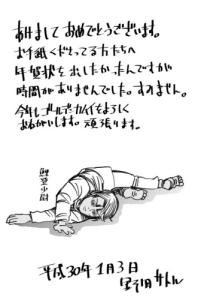 あけましておめでとうございます。
お手紙くださってる方たちへ
年賀状を出したかったんですが
時間がありませんでした。すみません。
今年もゴールデンカムイをよろしく
おねがいします。頑張ります。
鯉登少尉
平成30年1月3日
野田サトル